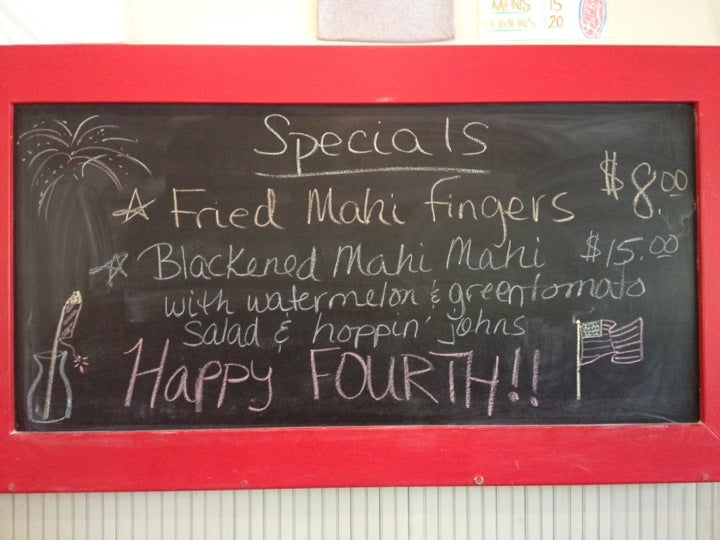 MENS 15
WOMEN'S $20
Specials
Fried Mahi fingers $8.00
Blackened Mahi Mahi $15.00
with watermelon & greentomato
salad & hoppin' johns
Happy FOURTH!!